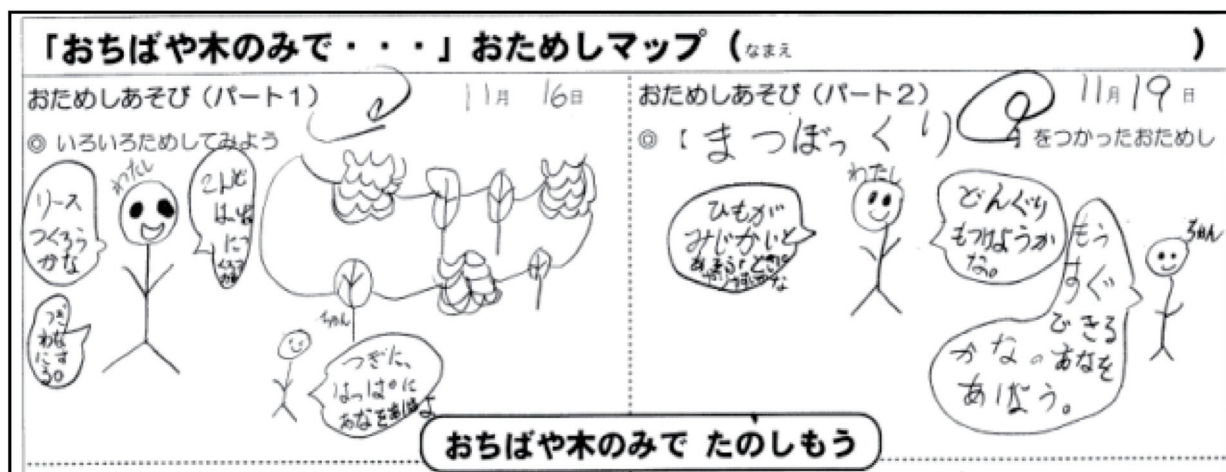 「おちばや木のみで・・・」おためしマップ（なまえ　　　　）
おためしあそび（パート1）　11月　16日
◎ いろいろためしてみよう
わたし
リース
つくろう
かな
こんど
つぎ
わな
にす
る。
ちゃん
つぎに、
はっぱに
あなをあけるよ
おためしあそび（パート2）　11月19日
◎ まつぼっくり をつかったおためし
わたし
ひもが
みじかいと
どんぐり
もつけようか
な。
ちゃん
もう
すぐ
できる
かな。あなを
あけよう。
おちばや木のみで たのしもう